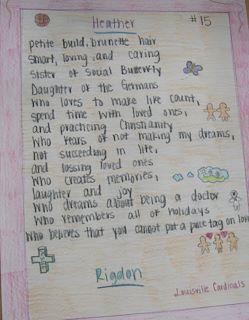 Heather
#15
petite build, brunette hair
smart, loving, and caring
Sister of Social Butterfly
Daughter of the Germans
Who loves to make life count,
spend time with loved ones,
and practicing Christianity
Who fears of not making my dreams,
not succeeding in life,
and lossing loved ones
Who creates memories,
laughter and joy
Who dreams about being a doctor
Who remembers all of holidays
Who believes that you cannot put a price tag on love
Rigdon
Louisville Cardinals